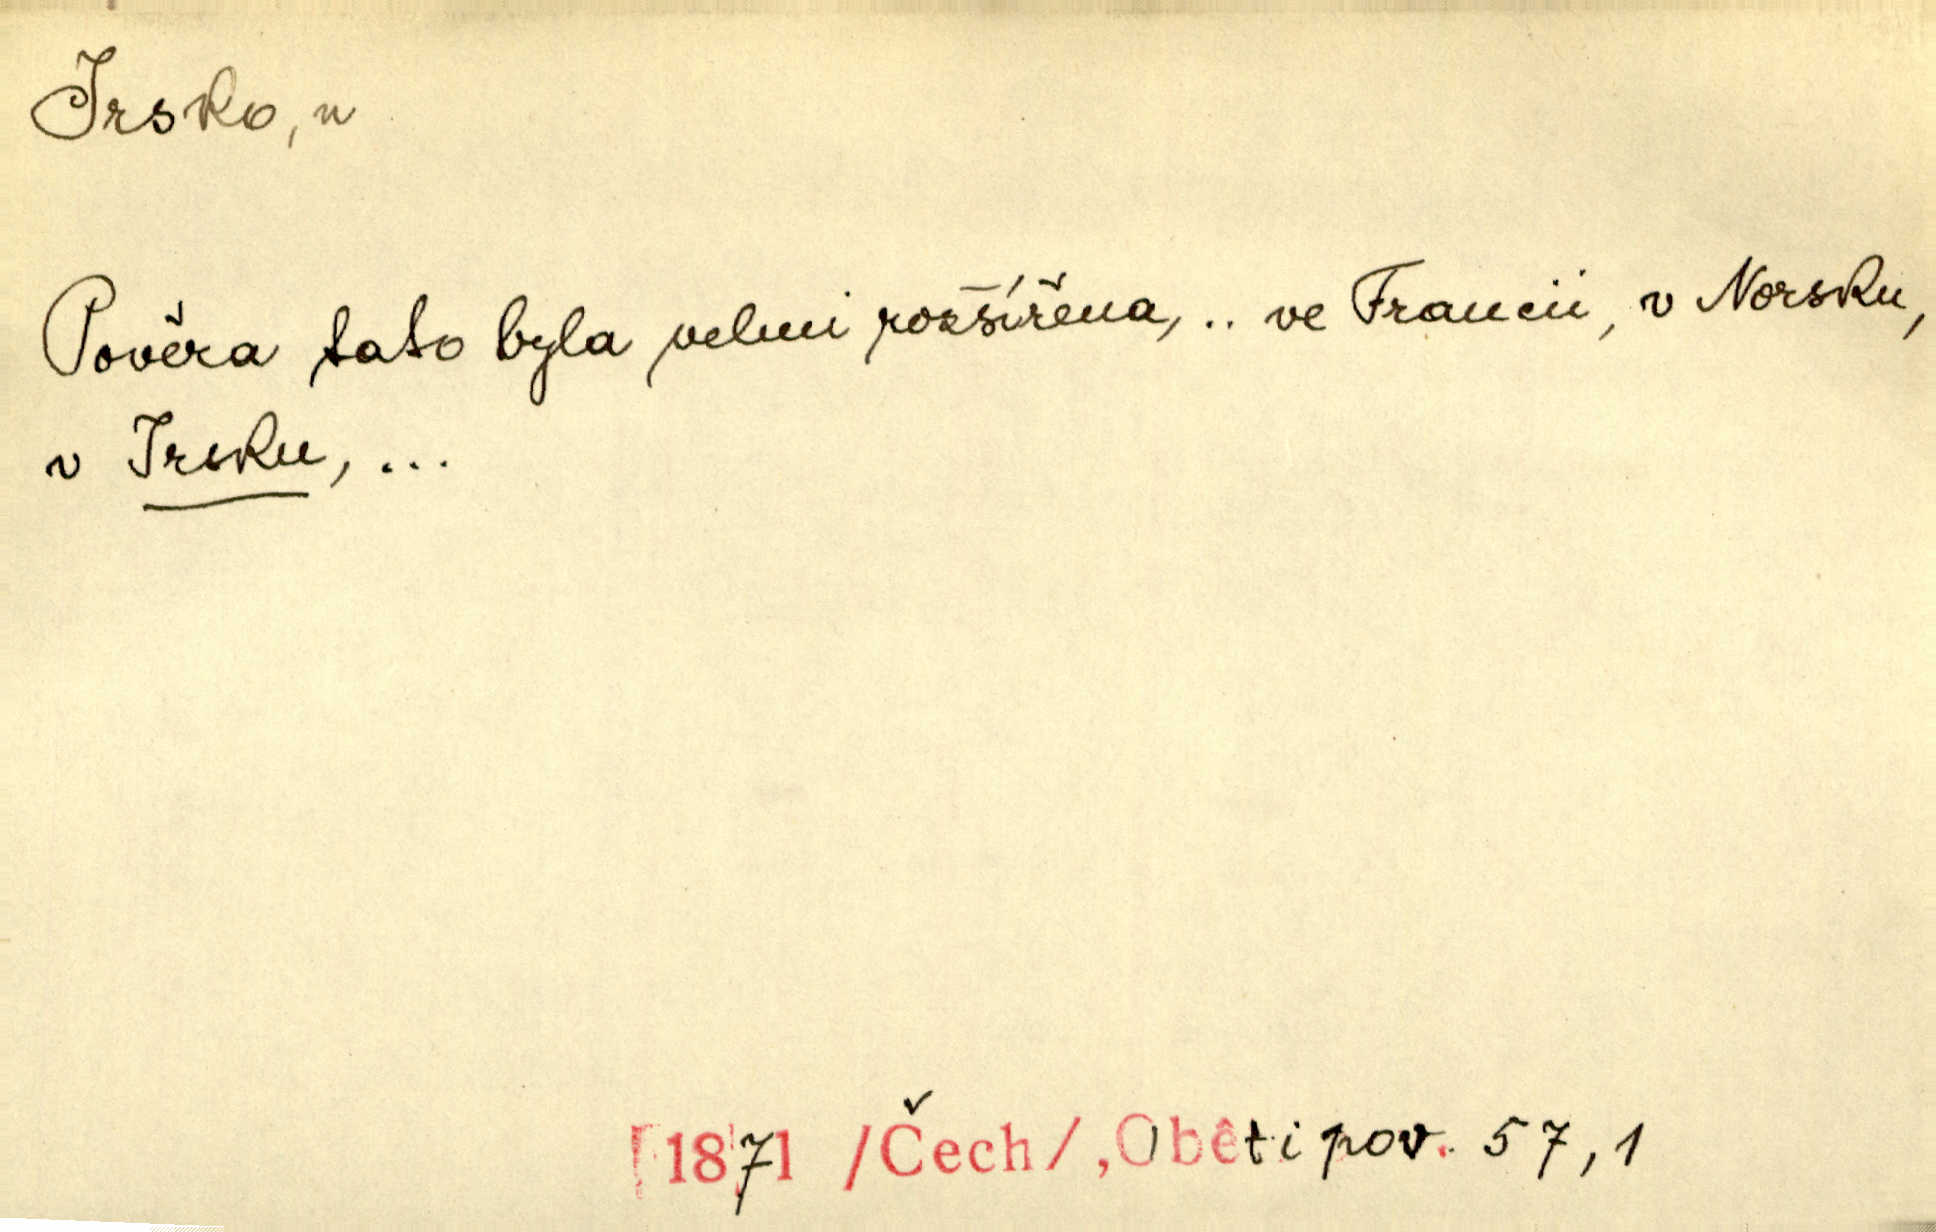 Irsko, n
Pověra tato byla velmi rozšířena, .. ve Francii, v Norsku,
v Irsku, ...
[1871 /Čech/, Oběti pov. 57, 1